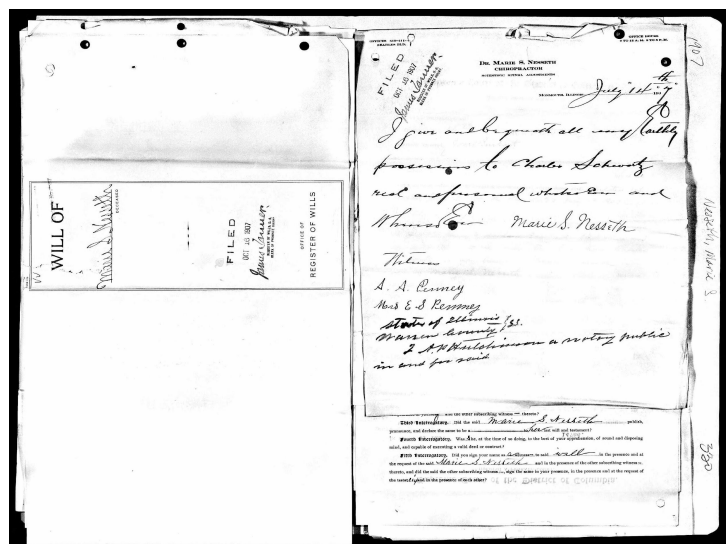 WILL OF
Marie S. Nesseth
DECEASED
FILED
OCT 15 1907
James Tanner
REGISTER OF WILLS, D.C.
OFFICE OF
REGISTER OF WILLS
FILED
OCT 15 1907
James Tanner
OFFICE HOURS
DR. MARIE S. NESSETH
CHIROPRACTOR
MONMOUTH, ILLINOIS, July 14th 1907
I give and bequeath all my Earthly
possesions to Charles Schwatz
real and personal whatso Ever and
Whereso Ever Marie S. Nesseth
Witness
A. A. Penney
Mrs E S Penney
State of Illinois } SS.
Warren County
I A. P. Hutchinson a notary public
in and for said
1907
Nesseth, Marie S.
and the other subscribing witness thereto?
Third Interrogatory. Did the said Marie S. Nesseth publish,
pronounce, and declare the same to be a her will and testament?
Fourth Interrogatory. Was she, at the time of so doing, to the best of your apprehension, of sound and disposing
mind, and capable of executing a valid deed or contract?
Fifth Interrogatory. Did you sign your name as a witness to said will in the presence and at
the request of the said Marie S. Nesseth and in the presence of the other subscribing witness
thereto, and did the said the other subscribing witness sign the same in your presence, in the presence and at the request of
the testatrix, and in the presence of each other?